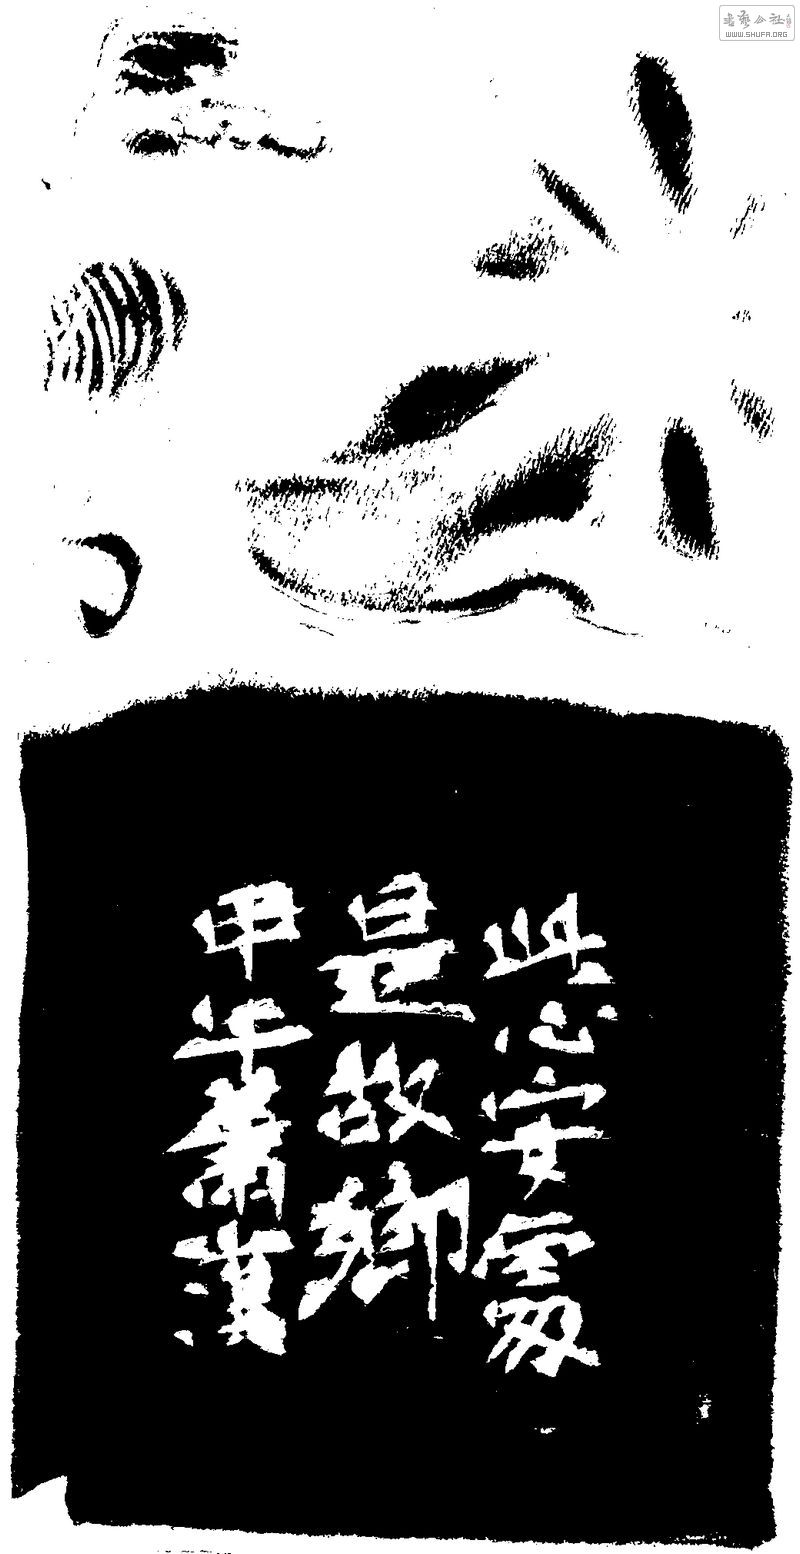 此心安處
是故鄉
甲午蕭漢
书艺公社
WWW.SHUFA.ORG